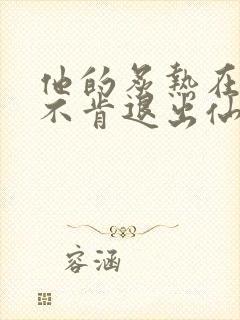 他的炙热在
不肯退出仙
容涵